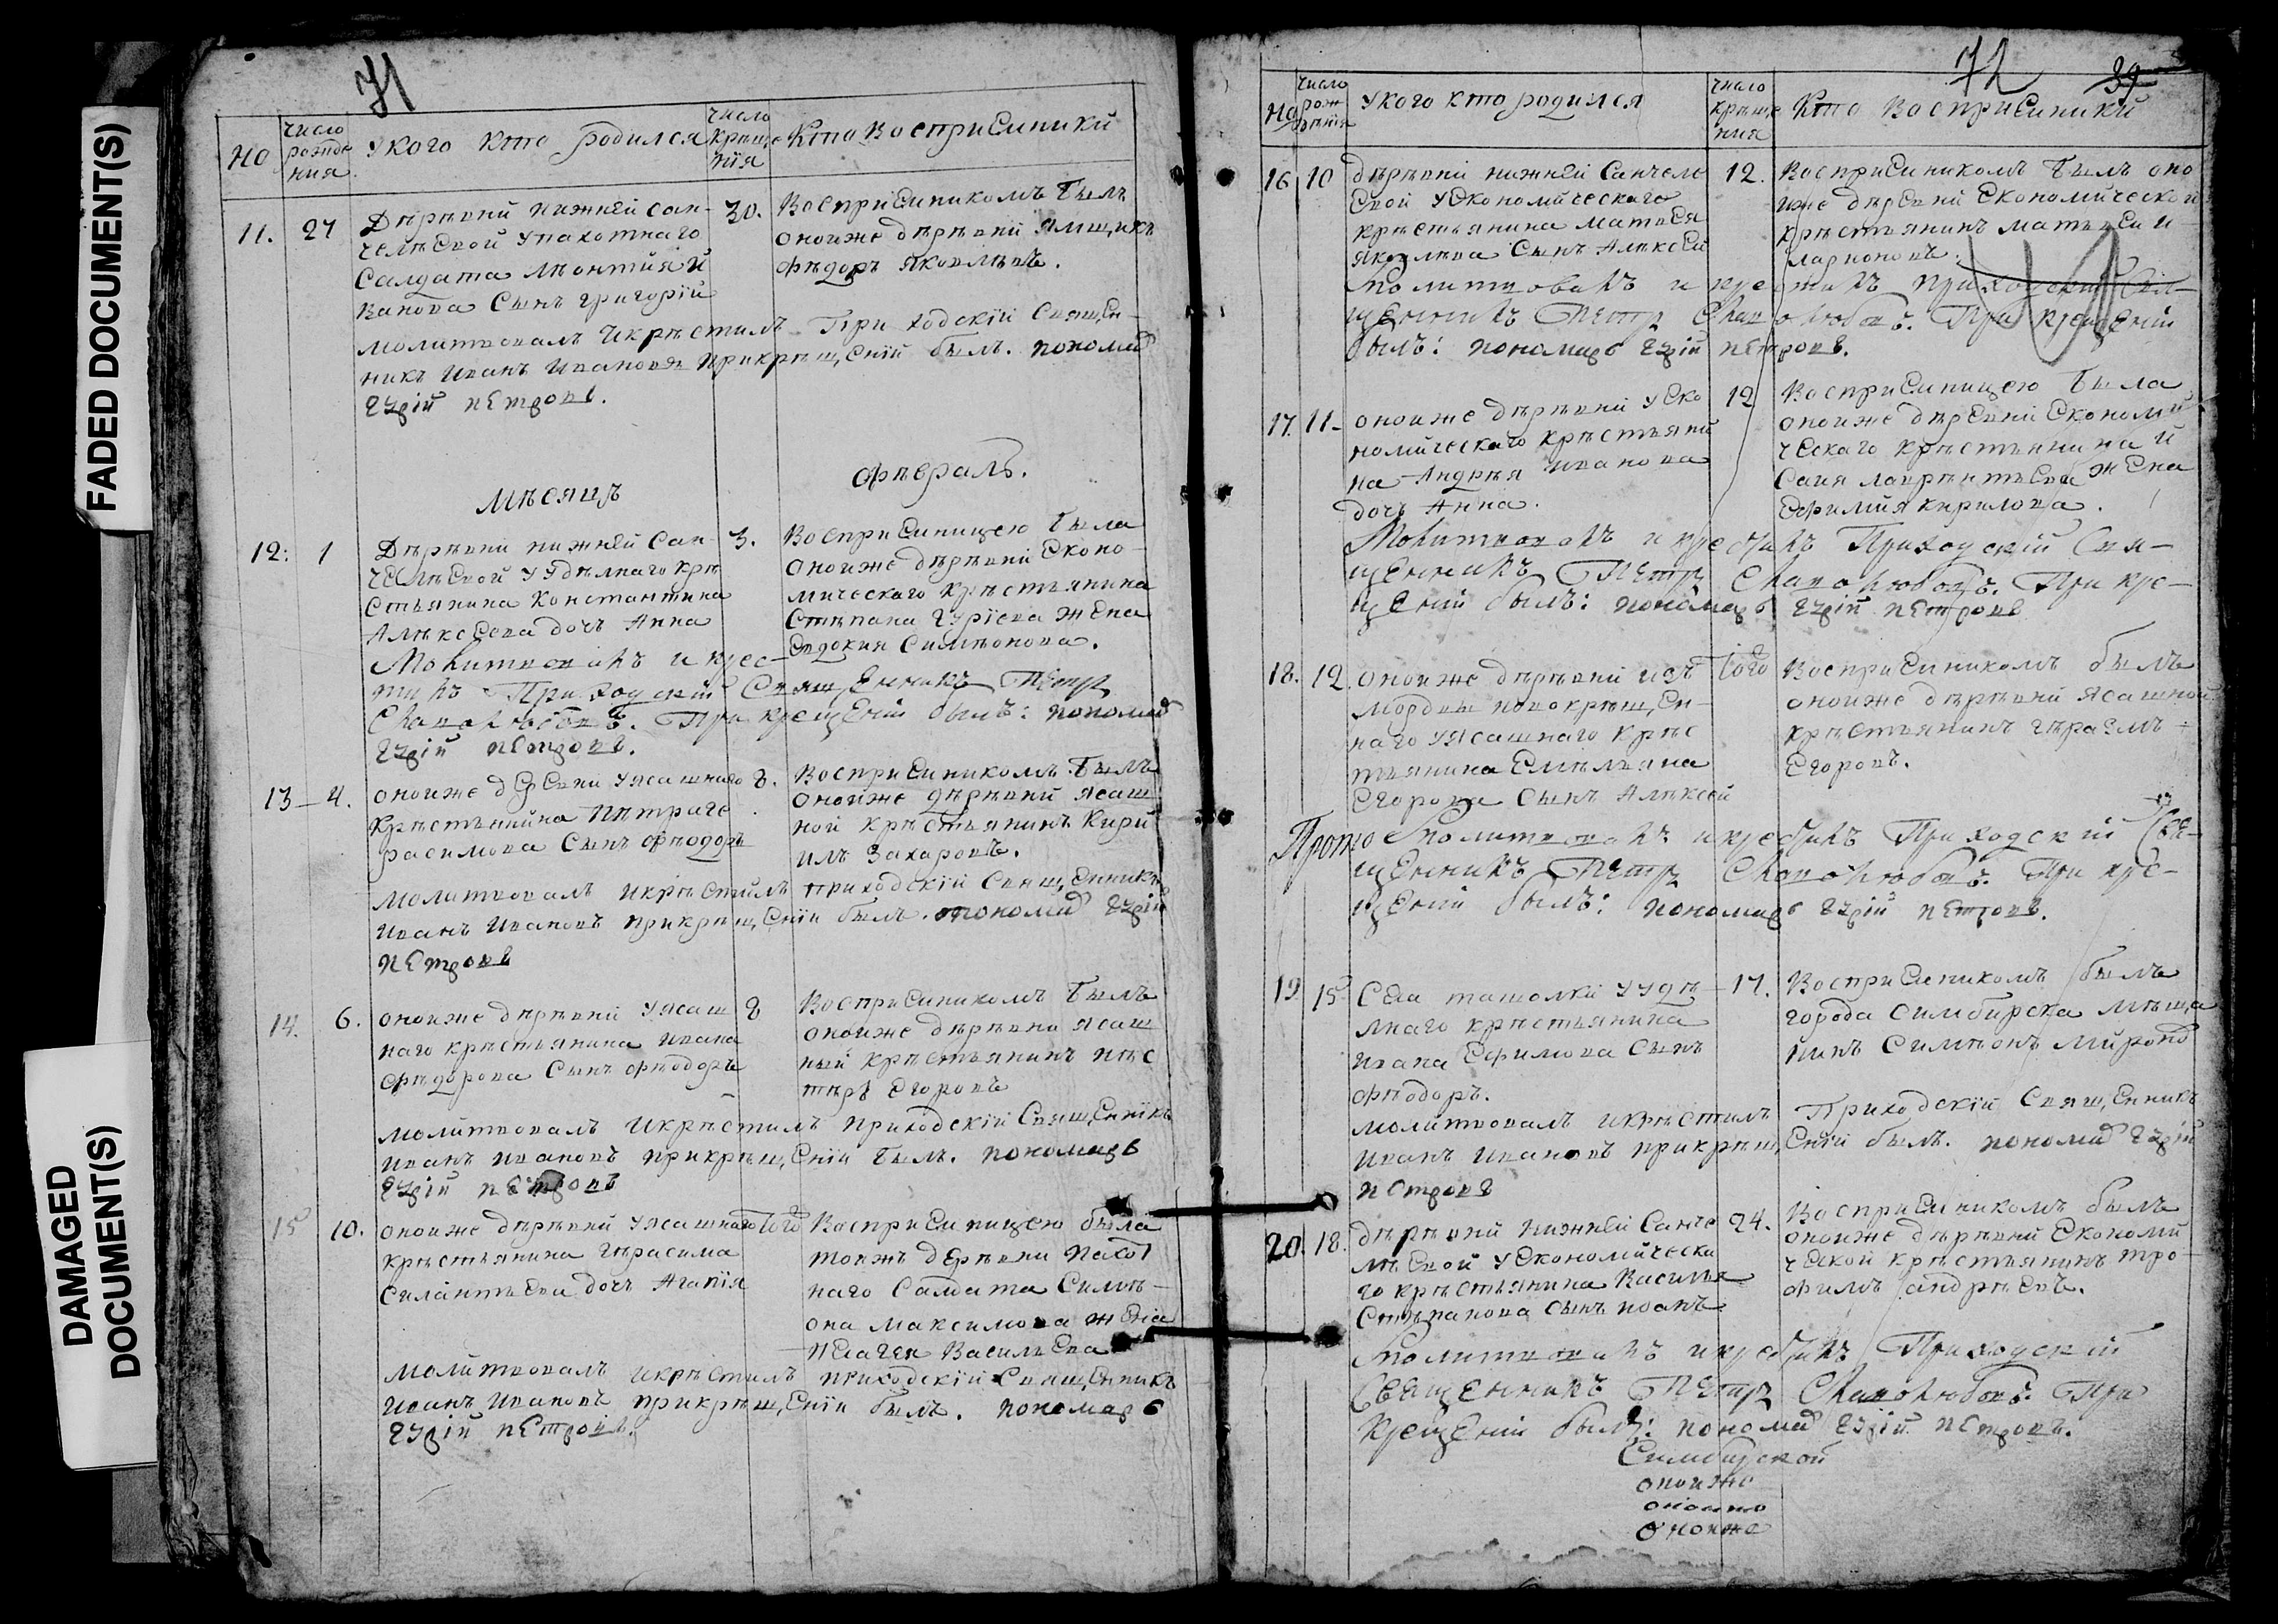 FADED DOCUMENT(S)
DAMAGED
DOCUMENT(S)
71
НО
число рождения
У кого кто родился
число крѣщения
Кто восприемники
11. 27
Дѣрѣвни нижней сан-
челѣевой у пахотнаго
салдата лѣонтия и
ванова сынъ григорий
30.
Восприемникомъ былъ
оноиже дѣрѣвни ямщикъ
фѣдоръ яковлѣвъ.
молитвовалъ и крѣстилъ приходскій священ-
никъ иванъ ивановъ при крѣщеніи былъ. пономарь
гурій петровъ.
Мѣсяцъ февраль.
12: 1
Дѣрѣвни нижней сан-
челѣевой у удѣлнаго крѣ
стьянина константина
алѣксеева дочь анна
3.
Восприемницею была
оноиже дѣрѣвни еконо-
мическаго крѣстьянина
стѣпана гурієва жена
евдокия симѣонова.
Молитвовалъ и крес-
тилъ Приходскій Священникъ Петръ
Славолюбовъ. При крещеніи былъ: пономарь
гурій петровъ.
13 4.
оноиже дѣревни у ясашнаго
крѣстьянина пѣтра ге
расимова сынъ фѣодоръ
8.
Восприемникомъ былъ
оноиже дѣрѣвни ясаш
ной крѣстьянинъ кири
илъ захаровъ.
молитвовалъ и крѣстилъ приходскій священникъ
иванъ ивановъ при крѣщеніи былъ. пономарь гурій
петровъ
14. 6.
оноиже дѣрѣвни у ясаш
наго крѣстьянина ивана
фѣдорова сынъ фѣодоръ
8
Восприемникомъ былъ
оноиже дѣрѣвни ясаш
ный крѣстьянинъ нѣс
тѣръ егоровъ
молитвовалъ и крѣстилъ приходскій священникъ
иванъ ивановъ при крѣщеніи былъ. пономарь
гурій петровъ
15 10.
оноиже дѣрѣвни у ясашнаго
крѣстьянина гѣрасима
силантьева дочь агапія
того
Восприемницею была
тоижъ дѣрѣвни пахот
наго салдата симѣ-
она максимова жена
пелагея васильева
молитвовалъ и крѣстилъ приходскій священникъ
иванъ ивановъ при крѣщеніи былъ. пономарь
гурій петровъ.
72
39
НО
число рождѣния
У кого кто родился
число крѣщения
Кто восприемники
16 10
дѣрѣвни нижней санчелѣ
евой у економическаго
крѣстьянина матвея
яковлѣва сынъ алѣксей
12.
Восприемникомъ былъ оно
иже дѣревни економической
крѣстьянинъ матвеи и
ларионовъ.
Молитвовалъ и крестилъ приходскій Свя-
щенникъ Петръ Славолюбовъ. При крещеніи
былъ: пономарь гурій петровъ.
17. 11
оноиже дѣрѣвни у эко
номическаго крѣстьяни
на андрѣя иванова
дочь анна.
12
Восприемницею была
оноиже дѣревни економи
ческаго крѣстьянина и
саия лаврѣнтьева жена
ефимия кирилова.
Молитвовалъ и крестилъ Приходскій Свя-
щенникъ Петръ Славолюбовъ. При кре-
щеніи былъ: пономарь гурій петровъ
18. 12.
оноиже дѣрѣвни изъ
мордвы новокрѣщен-
наго у ясашнаго крѣс
тьянина емѣльяна
егорова сынъ алѣксей
того
Восприемникомъ былъ
оноиже дѣрѣвни ясашной
крѣстьянинъ гѣрасимъ
егоровъ.
Прото
Молитвовалъ и крестилъ Приходскій Свя-
щенникъ Петръ Славолюбовъ. При кре-
щеніи былъ: пономарь гурій петровъ.
19 15
Села ташолки у удѣ-
лнаго крѣстьянина
ивана ефимова сынъ
фѣодоръ.
17.
Восприемникомъ былъ
города симбирска мѣща
нинъ симѣонъ миронов
молитвовалъ и крѣстилъ Приходскій священникъ
иванъ ивановъ при крѣщеніи былъ. пономарь гурій
петровъ
20. 18.
дѣрѣвни нижней санче
лѣевой у економическа
го крѣстьянина василья
стѣпанова сынъ иванъ
24.
Восприемникомъ былъ
оноиже дѣрѣвни економи
ческой крѣстьянинъ тро-
фимъ андрѣевъ.
Молитвовалъ и крестилъ Приходскій
Священникъ Петръ Славолюбовъ. При
Крещеніи былъ: пономарь гурій петровъ.
Симбирской
оноиже
оноиже